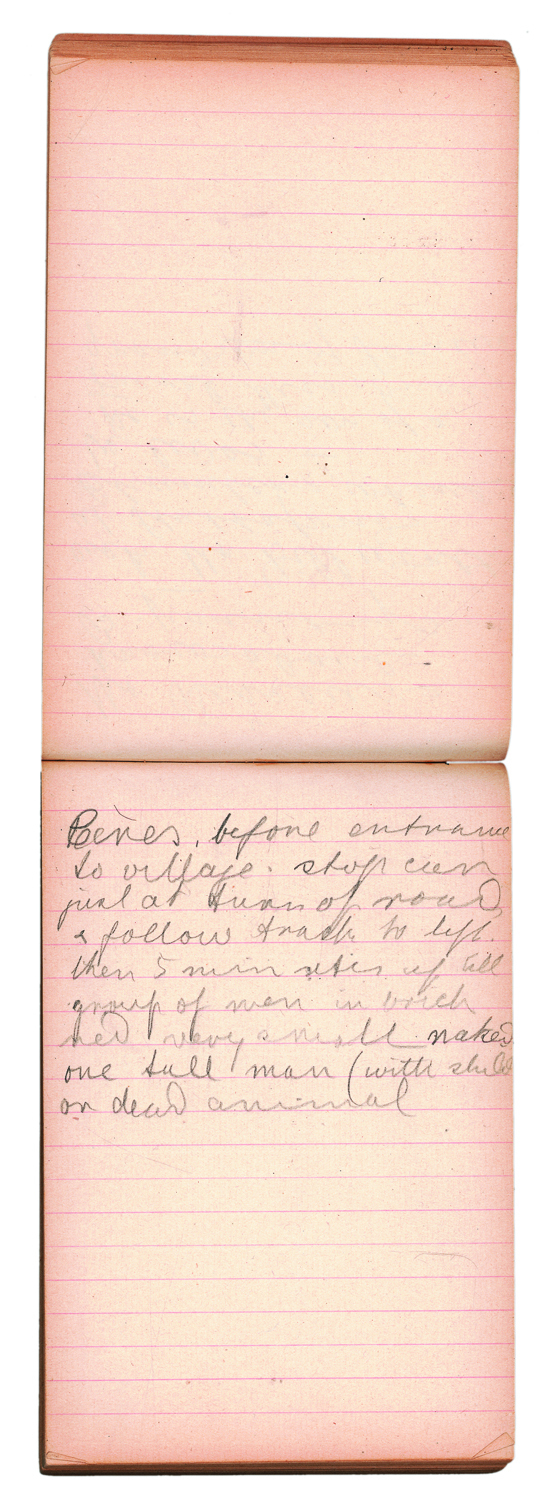 before entrance
to village. stop car
just at turn of road
& follow track to left.
then 5 min up till
group of men in brick
red very small naked
one tall man (with child
or dead animal